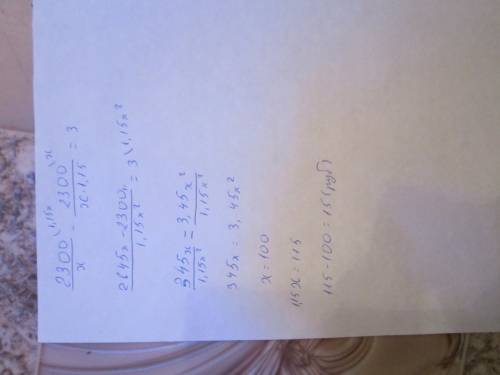 2300\1,15x / x - 2300\x / x·1,15 = 3
2645x - 2300x / 1,15x² = 3\1,15x²
345x / 1,15x² = 3,45x² / 1,15x²
345x = 3,45x²
x = 100
1,15x = 115
115 - 100 = 15 (руб)